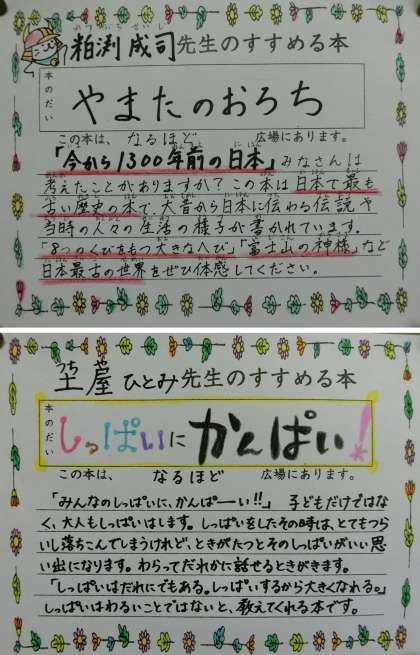 粕渕 成司先生のすすめる本
本のだい
やまたのおろち
この本は、 なるほど 広場にあります。
「今から1300年前の日本」みなさんは
考えたことがありますか？この本は日本で最も
古い歴史の本で大昔から日本に伝わる伝説や
当時の人々の生活の様子が書かれています。
「8つのくびをもつ大きなへび」「富士山の神様」など
日本最古の世界をぜひ体感してください。
土屋ひとみ先生のすすめる本
本のだい
しっぱいにかんぱい！
この本は、 なるほど 広場にあります。
「みんなのしっぱいに、かんぱーい!!」 子どもだけではな
く、大人もしっぱいはします。しっぱいをしたその時は、とてもつら
いし落ちこんでしまうけれど、ときがたつとそのしっぱいがいい思
い出になります。わらってだれかに話せるときがきます。
「しっぱいはだれにでもある。しっぱいするから大きくなれる。」
しっぱいはわるいことではないと、教えてくれる本です。